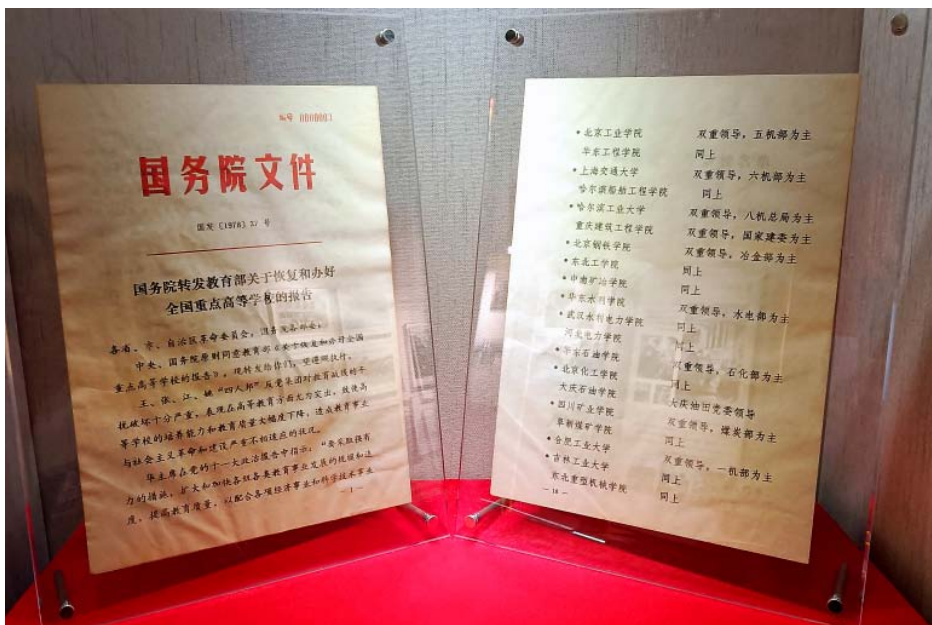 编号
国务院文件
国发〔1978〕27 号
国务院转发教育部关于恢复和办好
全国重点高等学校的报告
各省、市、自治区革命委员会,国务院各部委:
中央、国务院原则同意教育部《关于恢复和办好全国
重点高等学校的报告》,现转发给你们,望遵照执行。
王、张、江、姚“四人帮”反党集团对教育战线的干
扰破坏十分严重,表现在高等教育方面尤为突出,致使高
等学校的培养能力和教育质量大幅度下降,造成教育事业
与社会主义革命和建设严重不相适应的状况。
华主席在党的十一大政治报告中指示:“要采取强有
力的措施,扩大和加快各级各类教育事业发展的规模和速
度,提高教育质量,以配合各项经济事业和科学技术事业
— 1 —
• 北京工业学院 双重领导,五机部为主
华东工程学院 同上
• 上海交通大学 双重领导,六机部为主
哈尔滨船舶工程学院 同上
• 哈尔滨工业大学 双重领导,八机总局为主
重庆建筑工程学院 双重领导,国家建委为主
• 北京钢铁学院 双重领导,冶金部为主
• 东北工学院 同上
• 中南矿冶学院 同上
• 华东水利学院 双重领导,水电部为主
• 武汉水利电力学院 同上
河北电力学院 同上
• 华东石油学院 双重领导,石化部为主
• 北京化工学院 同上
大庆石油学院 大庆油田党委领导
• 四川矿业学院 双重领导,煤炭部为主
阜新煤矿学院 同上
• 合肥工业大学 双重领导,一机部为主
• 吉林工业大学 同上
东北重型机械学院 同上